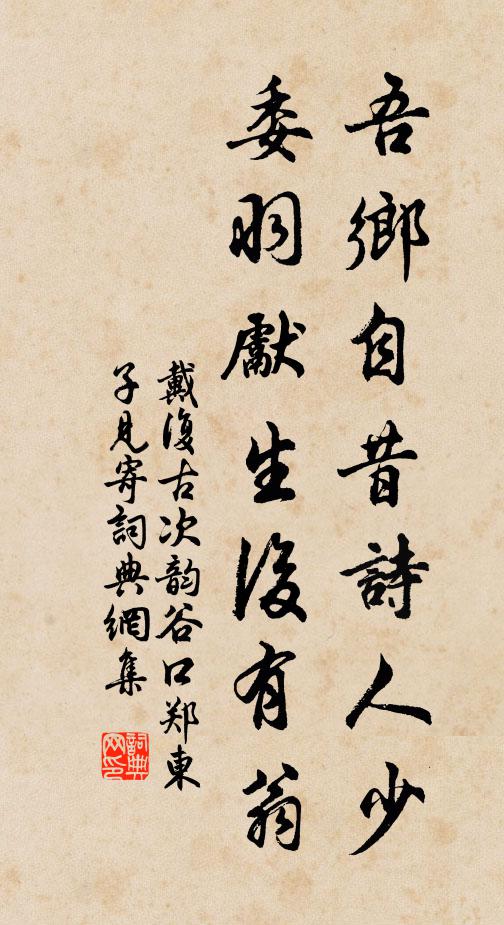 吾鄉自昔詩人少
委羽獻生後有翁
戴復古次韵谷口郑東
子見寄詞典網集
詞典
网印